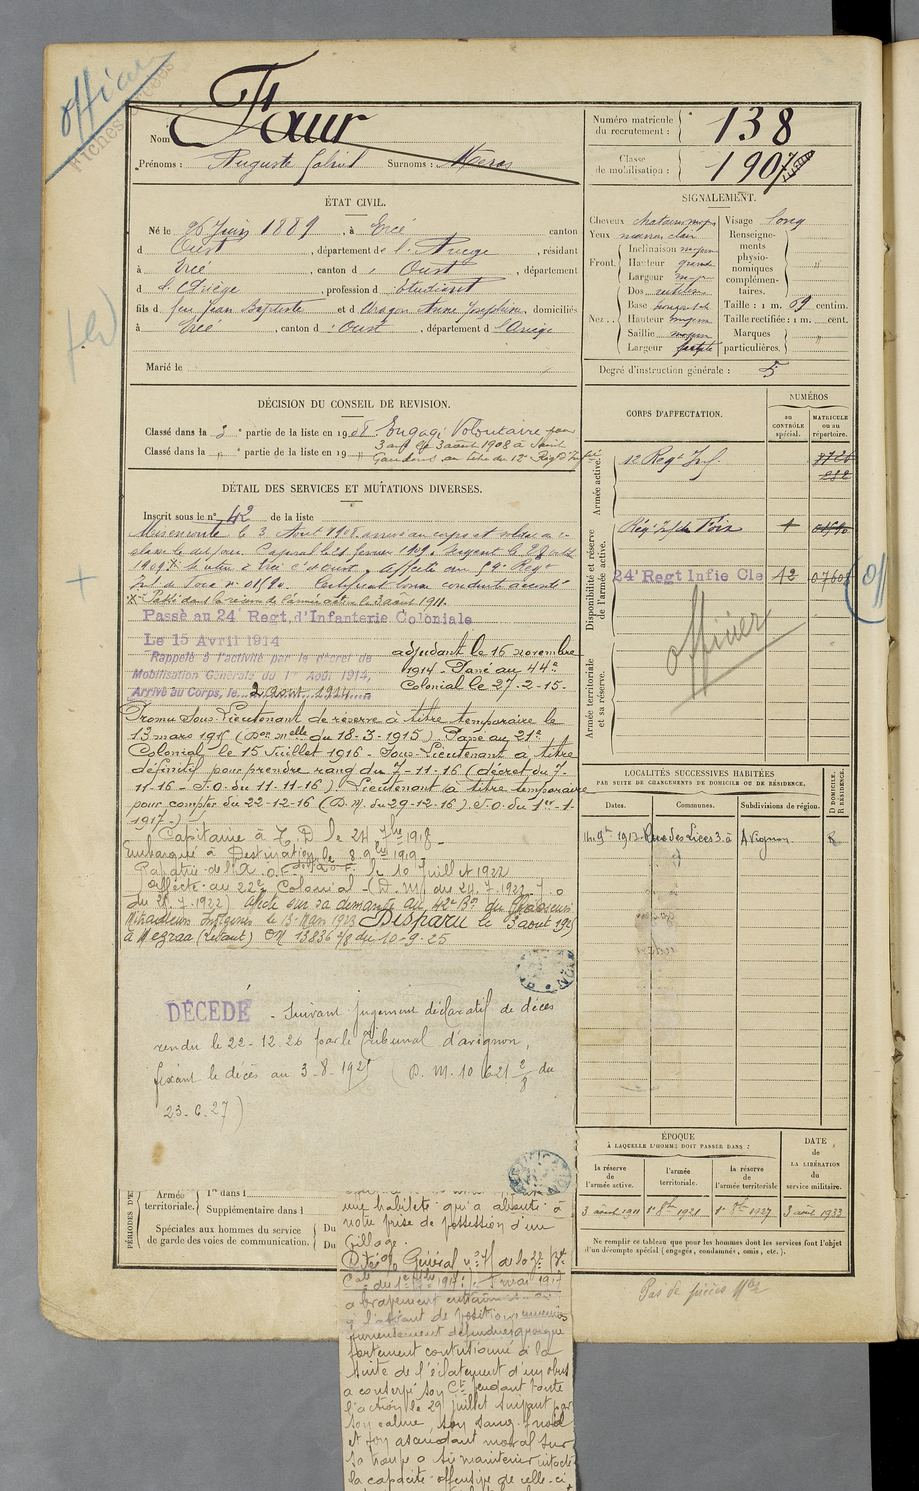 officier
Fiches
Nom Faur
Prénoms : Auguste Gabriel Surnoms :
Numéro matricule du recrutement : 138
Classe de mobilisation : 1907
ÉTAT CIVIL.
Né le 26 Juin 1889, à Ercé canton
d Oust, département de l'Ariège, résidant
à Ercé, canton d Oust, département
d l'Ariège, profession d étudiant
fils d feu Jean Baptiste et d Anne Joséphine, domiciliés
à Ercé, canton d Oust, département d l'Ariège
Marié le
SIGNALEMENT.
Cheveux châtain moyen Visage long
Yeux marron clair Renseigne-
ments
physio-
nomiques
complémen-
taires.
Front. Inclinaison moyenne
Hauteur grande
Largeur moy
Nez. Dos rectiligne
Base
Hauteur moyenne
Saillie moyenne
Largeur
Taille : 1 m. 69 centim.
Taille rectifiée : 1 m. cent.
Marques
particulières.
Degré d'instruction générale : 5
DÉCISION DU CONSEIL DE REVISION.
Classé dans la 3e partie de la liste en 1908. Engagé Volontaire pour
Classé dans la " e partie de la liste en 19 " 3 ans le 3 août 1908 à Saint
Gaudens au titre du 12e Régt d'Infie.
DÉTAIL DES SERVICES ET MUTATIONS DIVERSES.
Inscrit sous le n° 42 de la liste
Mis en route le 3 Août 1908. arrivé au corps et soldat de 2e
classe le dit jour. Caporal le 21 février 1909. Sergent le
1909. X Se retire à Ercé con d'Oust, Affecté au 59e Régt
Inf de Foix n° 01590. Certificat bonne conduite accordé
X Passé dans la réserve de l'armée active le 3 août 1911.
Passé au 24e Regt d'Infanterie Coloniale
Le 15 Avril 1914
Rappelé à l'activité par le décret de
Mobilisation Générale du 1er Août 1914,
Arrivé au Corps, le 2 Aout 1914
adjudant le 16 novembre
1914. Passé au 44e
Colonial le 27-2-15.
Promu Sous-Lieutenant de réserve à titre temporaire le
13 mars 1915 (Don melle du 18-3-1915) Passé au 21e
Colonial le 15 Juillet 1916 - Sous-Lieutenant à titre
définitif pour prendre rang du 7-11-16 (décret du 7-
11-16 - J.O. du 11-11-16) Lieutenant à titre temporaire
pour compter du 22-12-16 (D.M. du 29-12-16) J.O. du 1er-1-
1917-)
Capitaine à T.D. le 24 7bre 1918
Embarqué à Destination de l'A.O.F. le 8 9bre 1919
Rapatrié de l'A.O.F. le 10 Juillet 1922
Affecté au 22e Colonial - (D.M. du 24.7.1922 J.O
du 28.7.1922) Affecté sur sa demande au 42e Bon du
Mitrailleurs Indigènes le 13 Mars 1923 Disparu le 3 aout 1925
à Mezraa (Levant) CM 13836 2/8 du 10-9-25
DÉCÉDÉ - Suivant jugement déclaratif de décès
rendu le 22-12-26 par le Tribunal d'Avignon,
fixant le décès au 3-8-1925 (D.M. 10621 2/8 du
23-6-27)
CORPS D'AFFECTATION.
NUMÉROS
au CONTRÔLE spécial.
MATRICULE ou au répertoire.
Armée active.
12 Régt Inf.
Disponibilité et réserve de l'armée active.
Régt Inf de Foix 1
24e Regt Infie Cle 12
officier
Armée territoriale et sa réserve.
LOCALITÉS SUCCESSIVES HABITÉES
PAR SUITE DE CHANGEMENTS DE DOMICILE OU DE RÉSIDENCE.
Dates. Communes. Subdivisions de région. D DOMICILE. R RÉSIDENCE.
14 9bre 1913 Rue des Lices 3 à Avignon R
ÉPOQUE
À LAQUELLE L'HOMME DOIT PASSER DANS :
la réserve de l'armée active. l'armée territoriale. la réserve de l'armée territoriale
DATE de LA LIBÉRATION du service militaire.
3 août 1911 1er 8bre 1921 1er 8bre 1927 3 août 1933
Ne remplir ce tableau que pour les hommes dont les services font l'objet
d'un décompte spécial (engagés, condamnés, omis, etc.).
Pas de pièces
PÉRIODES D'E
Armée territoriale. 1re dans l
Supplémentaire dans l
Spéciales aux hommes du service Du
de garde des voies de communication. Du
une habileté qui a abouti à
notre prise de possession d'un
village.
Cité Ordre Général n° 71 de la 2e Don
Cale du 1er 1917 : 5 mai 1917
a bravement entraîné
à l'assaut de positions ennemies
furieusement défendues quoique
fortement contusionné à la
suite de l'éclatement d'un obus
a conservé son Ct pendant toute
l'action, le 29 juillet suivant par
son calme, son sang-froid
et son ascendant moral sur
sa troupe a su maintenir intacte
la capacité offensive de celle-ci